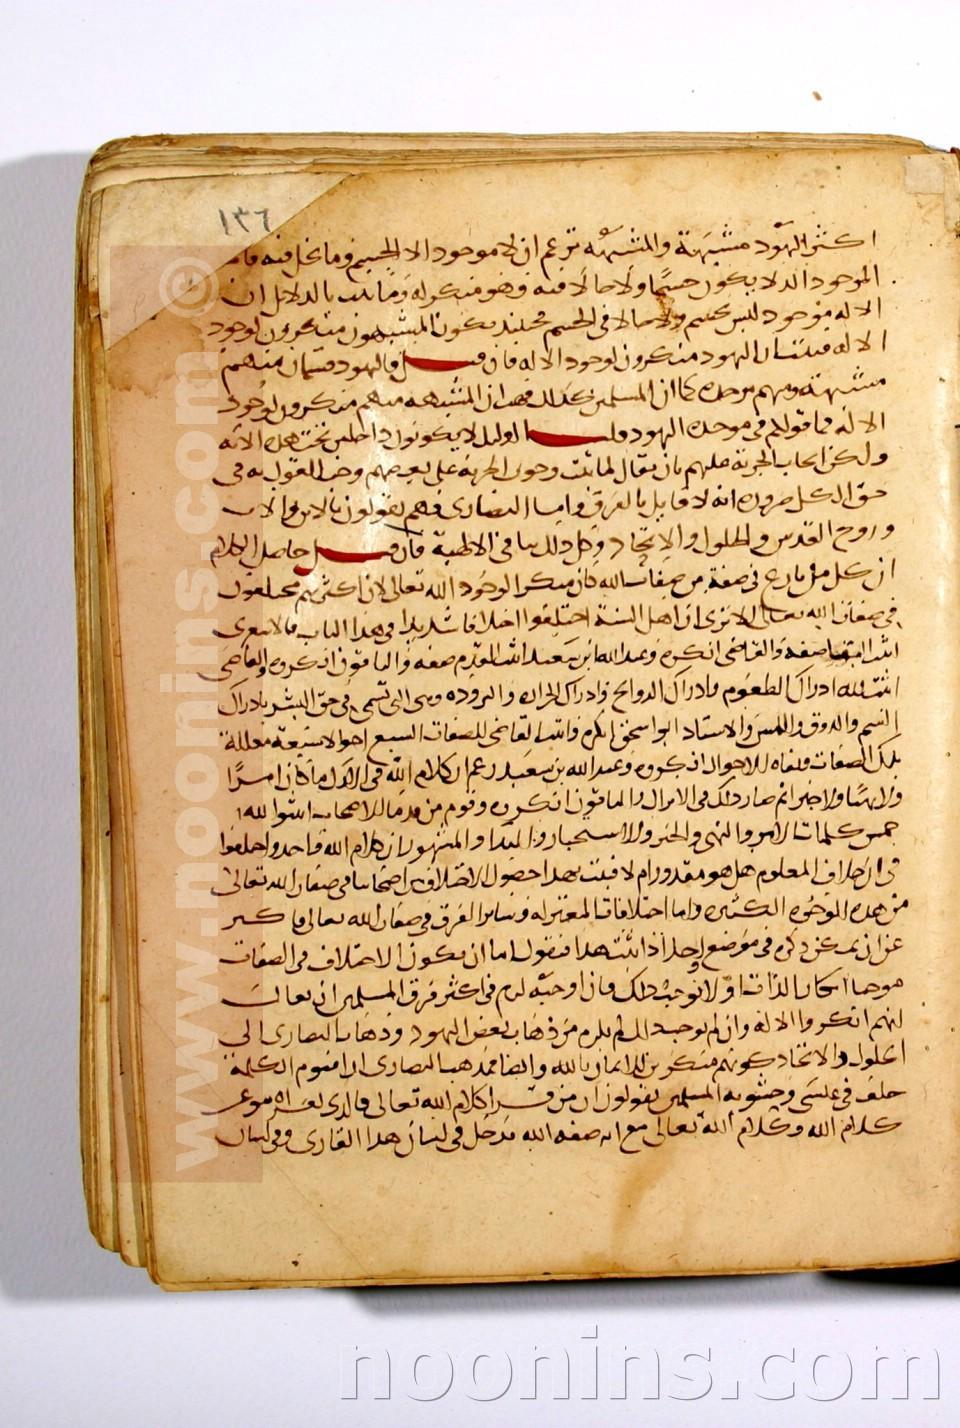 ١٣٦
اكثر اليهود مشبهة والمشبهة تزعم ان لا موجود الا الجسم وما يحل فيه فاما
الموجود الذي لا يكون جسما ولا حالا فيه فهو منكر له وما ثبت بالدلائل ان
الاله موجود ليس بجسم ولا حالا في الجسم فحينئذ يكون المشبهون منكرون لوجود
الاله فثبت ان اليهود منكرون لوجود الاله فان قيل فاليهود قسمان منهم
مشبهة ومنهم موحدة كما ان المسلمين كذلك فهب ان المشبهة منهم منكرون لوجود
الاله فما قولكم في موحدة اليهود قلنا اولئك لا يكونون داخلين تحت هذه الآية
ولكن ايجاب الجزية عليهم بان يقال لما ثبت وجوب الجزية على بعضهم وجب القول به في
حق الكل ضرورة انه لا قايل بالفرق واما النصارى فهم يقولون بالابن والاب
وروح القدس والحلول والاتحاد وكل ذلك ينافي الالهية فان قيل حاصل الكلام
ان كل من نازع في صفة من صفات الله كان منكرا لوجود الله تعالى لان اكثرهم مختلفون
في صفات الله تعالى الا ترى ان اهل السنة اختلفوا اختلافا شديدا في هذا الباب فالاشعري
اثبت البقا صفة والقاضي انكره وعبد الله بن سعيد اثبت القدم صفة والباقون انكروه والقاضي
اثبت لله ادراك الطعوم وادراك الروائح وادراك الحرارة والبرودة وهي التي تسمى في حق البشر بادراك
الشم والذوق واللمس والاستاذ ابو اسحق انكره واثبت القاضي للصفات السبع احوالا سبعة معللة
بتلك الصفات ونفاة الاحوال انكروه وعبد الله بن سعيد زعم ان كلام الله في الازل ما كان امرا
ولا نهيا ولا خبرا ثم صار ذلك في الانزال والباقون انكروه وقوم من قدماء الاصحاب اثبتوا لله
خمس كلمات الامر والنهي والخبر والاستخبار والندا والمشهور ان كلام الله واحد واختلفوا
في ان خلاف المعلوم هل هو مقدور ام لا فثبت بهذا حصول الاختلاف بين اصحابنا في صفات الله تعالى
من هذه الوجوه الكثيرة واما اختلافات المعتزلة وسائر الفرق في صفات الله تعالى فاكثر
من ان يمكن ذكره في موضع واحد اذا ثبت هذا فنقول اما ان يكون الاختلاف في الصفات
موجبا انكار الذات او لا يوجب ذلك فان اوجبه لزم في اكثر فرق المسلمين ان يقال
انهم انكروا الاله وان لم يوجب ذلك لم يلزم من ذهاب بعض اليهود وذهاب النصارى الى
الحلول والاتحاد كونهم منكرين للايمان بالله وايضا فمذهب النصارى ان اقنوم الكلمة
حلت في عيسى وحشوية المسلمين يقولون ان من قرا كلام الله تعالى فالذي يقراه هو عين
كلام الله وكلام الله تعالى مع انه صفة الله يدخل في لسان هذا القارئ وفي لسان
www.noonins.com ©
noonins.com